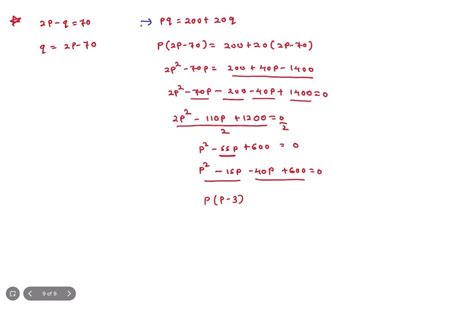 2P - q = 70
q = 2P - 70
→ Pq = 200 + 20q
P(2P-70) = 200 + 20(2P-70)
2P² - 70P = 200 + 40P - 1400
2P² - 70P - 200 - 40P + 1400 = 0
2P² - 110P + 1200 = 0
2 2
P² - 55P + 600 = 0
P² - 15P - 40P + 600 = 0
P(P-3)
9 of 9